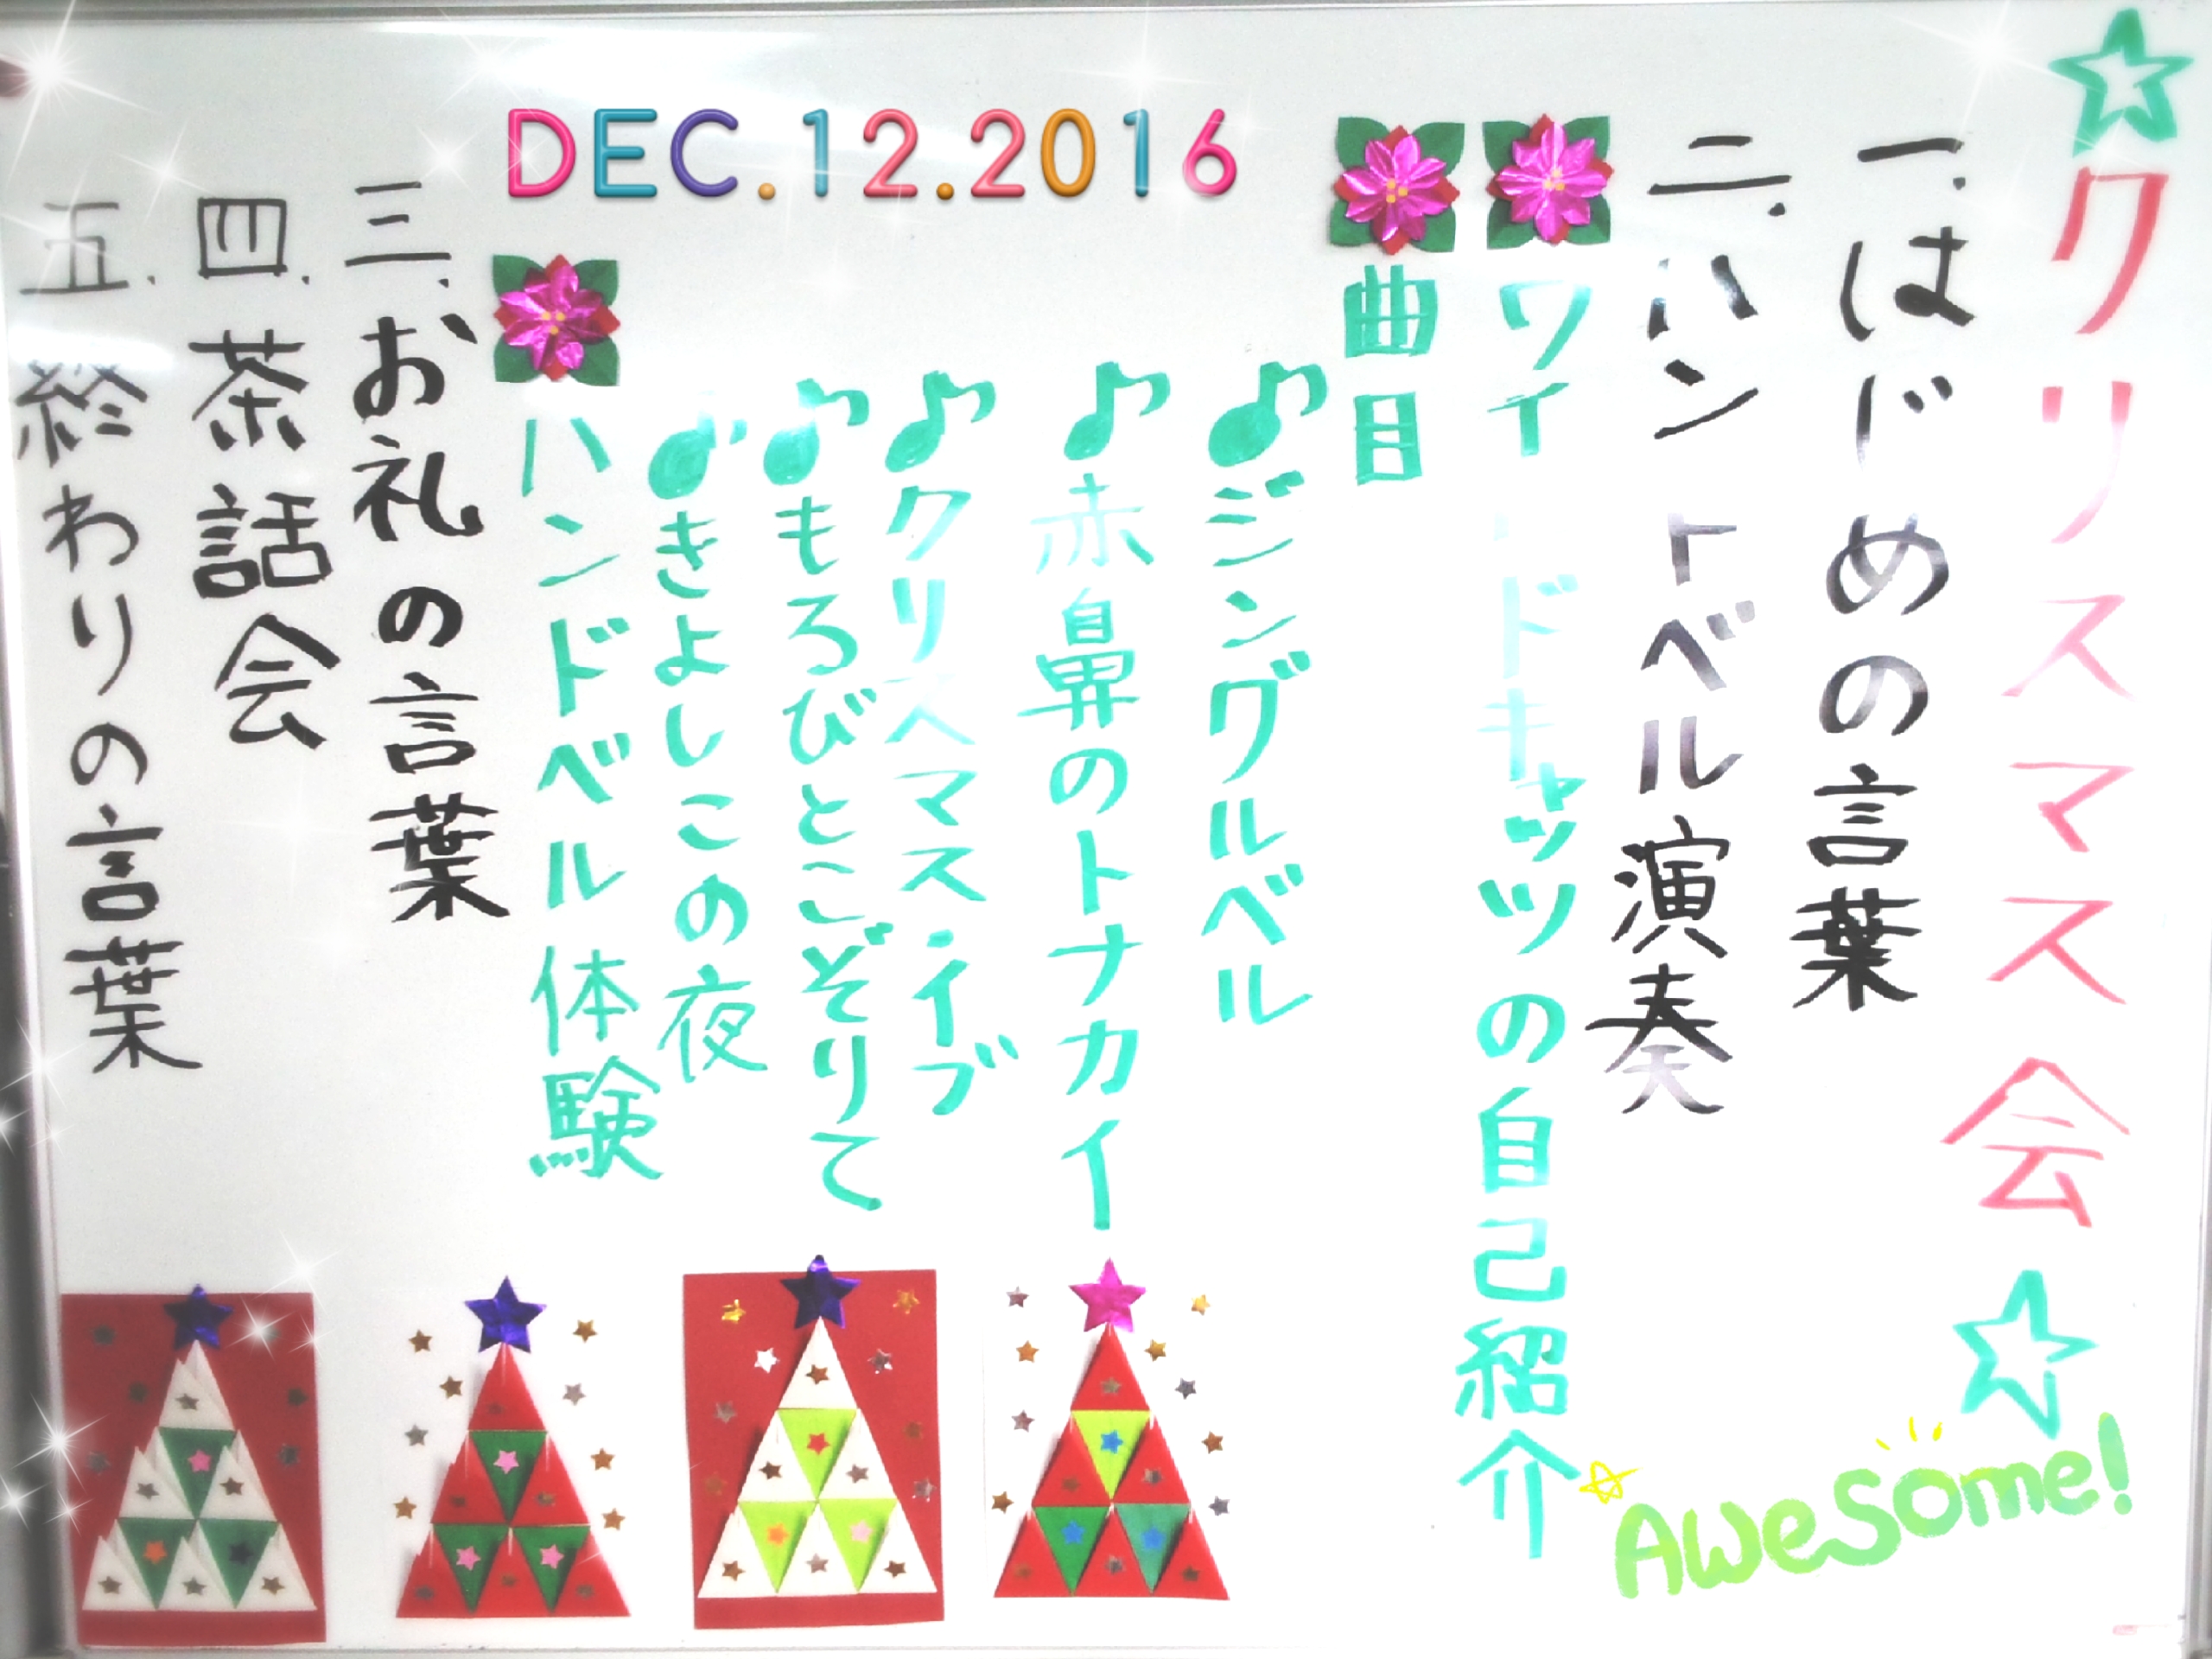 ☆クリスマス会☆
一.はじめの言葉
二.ハンドベル演奏
ワイルドキャッツの自己紹介
曲目
♪ジングルベル
♪赤鼻のトナカイ
♪クリスマス・イブ
♪もろびとこぞりて
♪きよしこの夜
ハンドベル体験
三.お礼の言葉
四.茶話会
五.終わりの言葉
DEC.12.2016
☆Awesome!